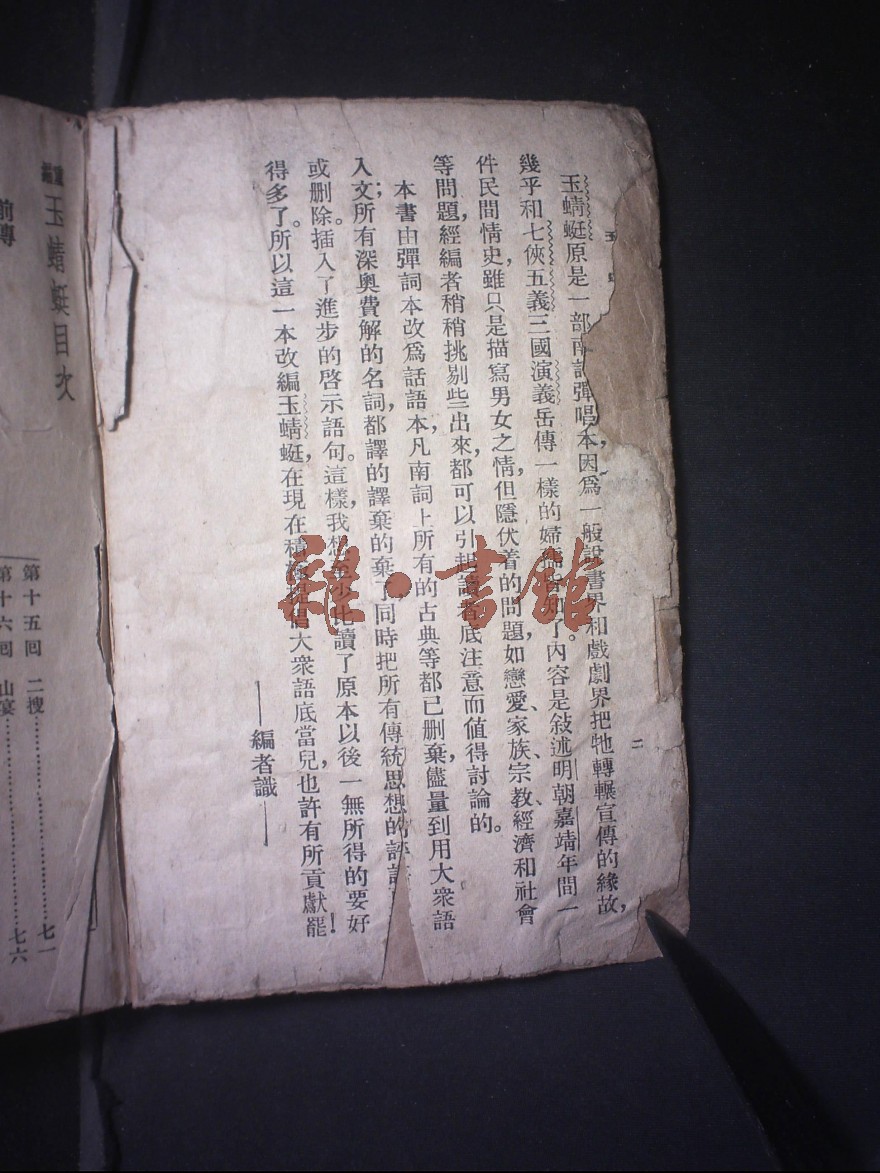 玉蜻蜓原是一部南詞彈唱本，因爲一般說書界和戲劇界把牠轉輾宣傳的緣故，
幾乎和七俠五義三國演義岳傳一樣的婦孺知了。內容是敍述明朝嘉靖年間一
件民間情史，雖只是描寫男女之情，但隱伏着的問題，如戀愛、家族、宗教、經濟和社會
等問題，經編者稍稍挑剔些出來，都可以引起讀者底注意而値得討論的。
本書由彈詞本改爲話語本，凡南詞上所有的古典等都已删棄，儘量到用大衆語
入文；所有深奧費解的名詞，都譯的譯棄的棄了，同時把所有傳統思想的
或删除。插入了進步的啓示語句。這樣，我想至少比讀了原本以後一無所得的要好
得多了。所以這一本改編玉蜻蜓，在現在積極提倡大衆語底當兒，也許有所貢獻罷！
——編者識——
二
玉
雜·書館
編
玉蜻蜓目次
前傳
第十五回 二搜⋯⋯七一
第十六回 山宴⋯⋯七六